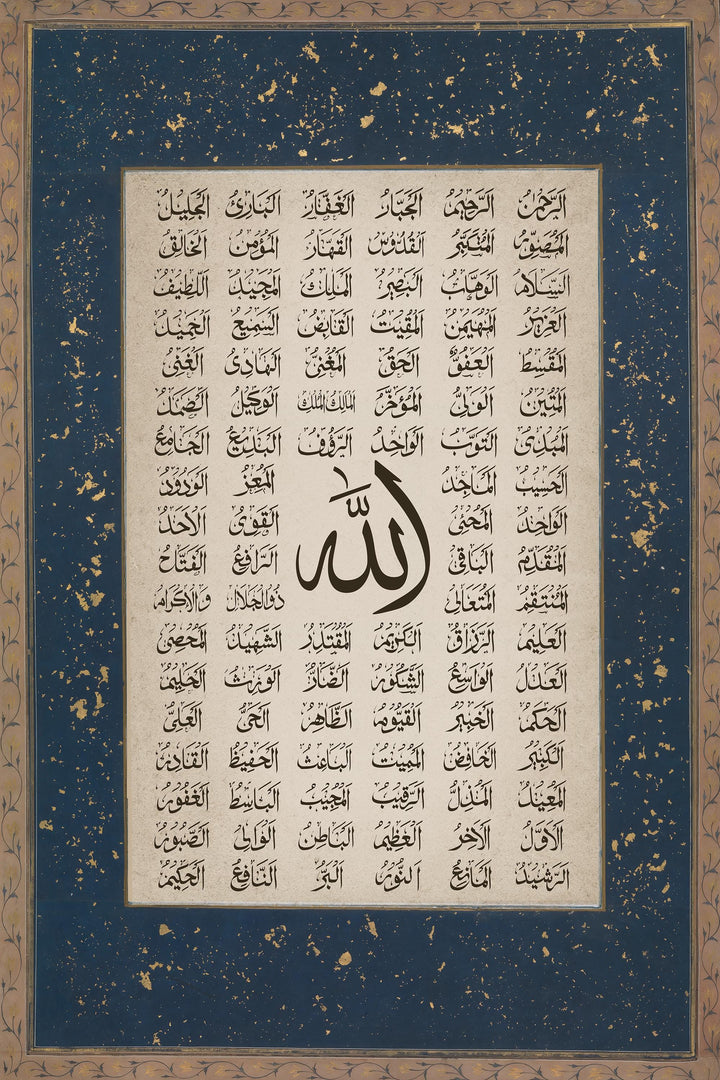 الرحمن الرحيم الجبار الغفار البارئ الجليل
المصور المتكبر القدوس القهار المؤمن الخالق
السلام الوهاب البصير الملك المجيد اللطيف
العزيز المهيمن المقيت القابض السميع الحميد
المقسط العفو الحق المغني الهادي الغني
المتين الولي المؤخر المالك الملك الوكيل الصمد
المبدئ التواب الواحد الرؤوف البديع الجامع
الحسيب الماجد المعز الودود
الواجد المحيي القوي الأحد
الله
المقدم الباقي الرافع الفتاح
المنتقم المتعالي ذو الجلال والاكرام
العليم الرزاق الكريم المقتدر الشهيد المحصي
العدل الواسع الشكور الضار الورث الحليم
الحكم الخبير القيوم الظاهر الحي العلي
الكبير الخافض المميت الباعث الحفيظ القادر
المعيد المذل الرقيب المجيب الباسط الغفور
الأول الآخر العظيم الباطن الوالي الصبور
الرشيد المانع النور البر النافع الحكيم